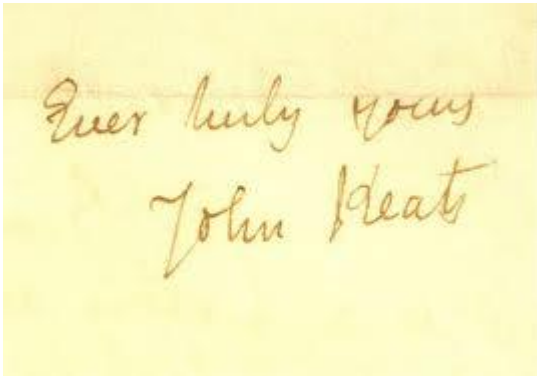 Ever truly yours
John Keats